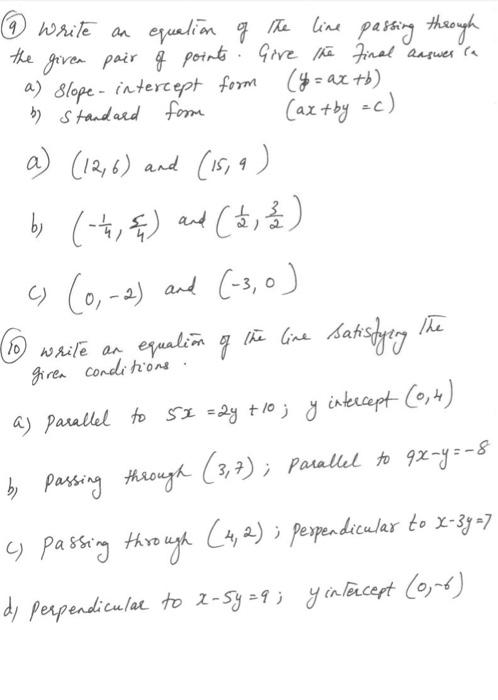 9 Write an equation of the line passing through
the given pair of points. Give the final answer in
a) Slope-intercept form (y = ax + b)
b) Standard form (ax + by = c)
a) (12, 6) and (15, 9)
b) (-1/4, 5/4) and (1/2, 3/2)
c) (0, -2) and (-3, 0)
10 write an equation of the line satisfying the
given conditions.
a) Parallel to 5x = 2y + 10; y intercept (0, 4)
b) Passing through (3, 7); Parallel to 9x - y = -8
c) Passing through (4, 2); perpendicular to x - 3y = 7
d) Perpendicular to x - 5y = 9; y intercept (0, -6)